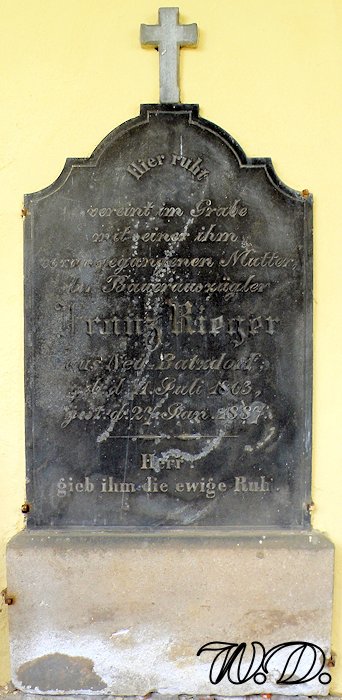 Hier ruht
vereint im Grabe
mit einer ihm
vorangegangenen Mutter
der Bauerauszügler
Franz Rieger
aus Neu Batzdorf,
geb. d. 4. Juli
gest. d. Jan.
Herr!
gieb ihm die ewige Ruh.
W.D.